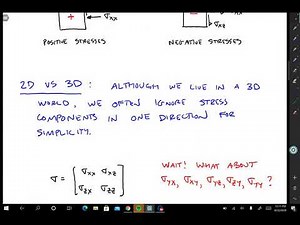 +
σxx
σxx
σxz
POSITIVE STRESSES
NEGATIVE STRESSES
2D VS 3D : ALTHOUGH WE LIVE IN A 3D
WORLD, WE OFTEN IGNORE STRESS
COMPONENTS IN ONE DIRECTION FOR
SIMPLICITY.
σ = [σxx σxz
σzx σzz]
WAIT! WHAT ABOUT
σyx, σxy, σyz, σzy, σyy ?